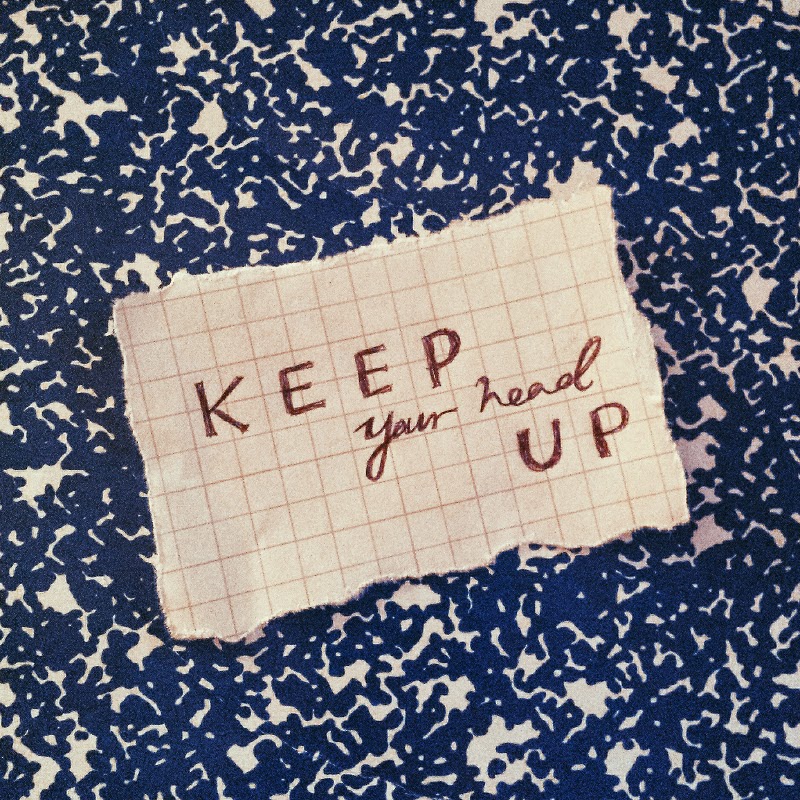 KEEP
your head
UP